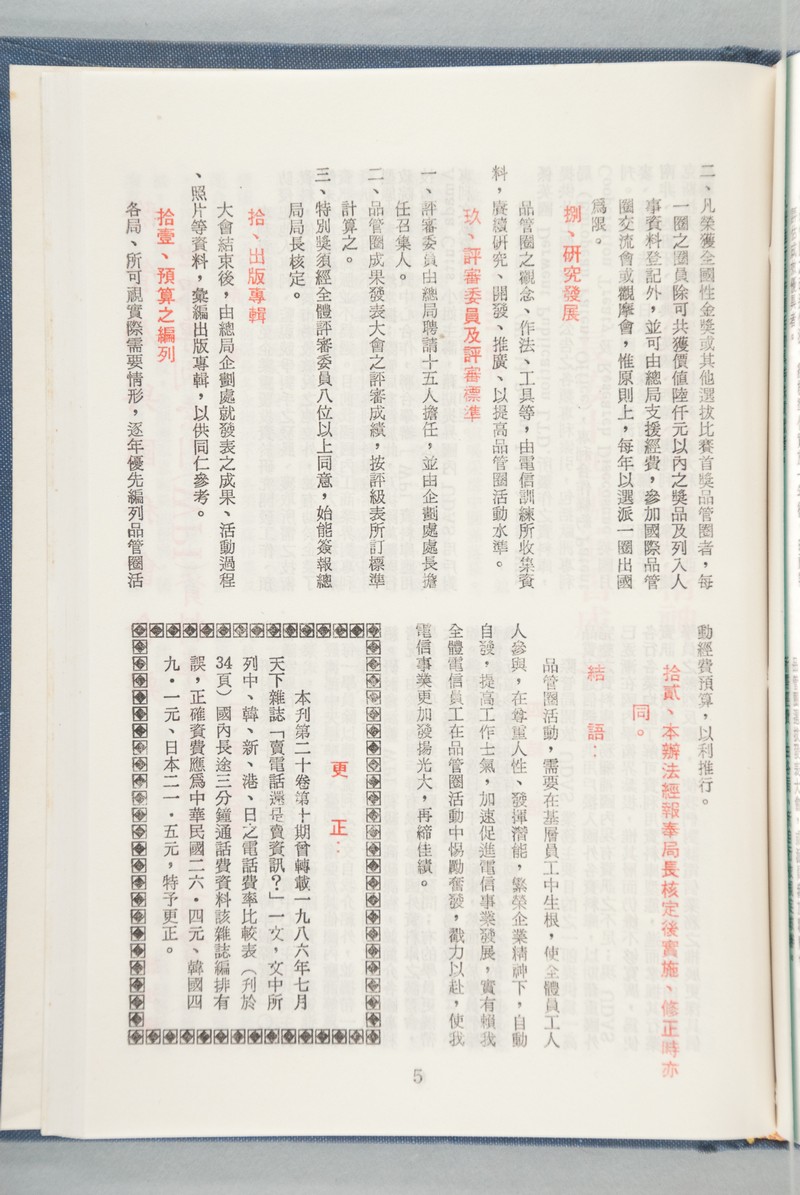 二、凡榮獲全國性金獎或其他選拔比賽首獎品管圈者，每
一圈之圈員除可共獲價值陸仟元以內之獎品及列入人
事資料登記外，並可由總局支援經費，參加國際品管
圈交流會或觀摩會，惟原則上，每年以選派一圈出國
爲限。
捌、研究發展
品管圈之觀念、作法、工具等，由電信訓練所收集資
料，賡續研究、開發、推廣、以提高品管圈活動水準。
玖、評審委員及評審標準
一、評審委員由總局聘請十五人擔任，並由企劃處處長擔
任召集人。
二、品管圈成果發表大會之評審成績，按評級表所訂標準
計算之。
三、特別獎須經全體評審委員八位以上同意，始能簽報總
局局長核定。
拾、出版專輯
大會結束後，由總局企劃處就發表之成果、活動過程
、照片等資料，彙編出版專輯，以供同仁參考。
拾壹、預算之編列
各局、所可視實際需要情形，逐年優先編列品管圈活
動經費預算，以利推行。
拾貳、本辦法經報奉局長核定後實施、修正時亦
同。
結語：
品管圈活動，需要在基層員工中生根，使全體員工人
人參與，在尊重人性、發揮潛能，繁榮企業精神下，自動
自發，提高工作士氣，加速促進電信事業發展，實有賴我
全體電信員工在品管圈活動中惕勵奮發，戮力以赴，使我
電信事業更加發揚光大，再締佳績。
更正：
本刊第二十卷第十期曾轉載一九八六年七月
天下雜誌「賣電話還是賣資訊？」一文，文中所
列中、韓、新、港、日之電話費率比較表（刊於
34頁）國內長途三分鐘通話費資料該雜誌編排有
誤，正確資費應爲中華民國二六・四元、韓國四
九・一元、日本二一・五元，特予更正。
5